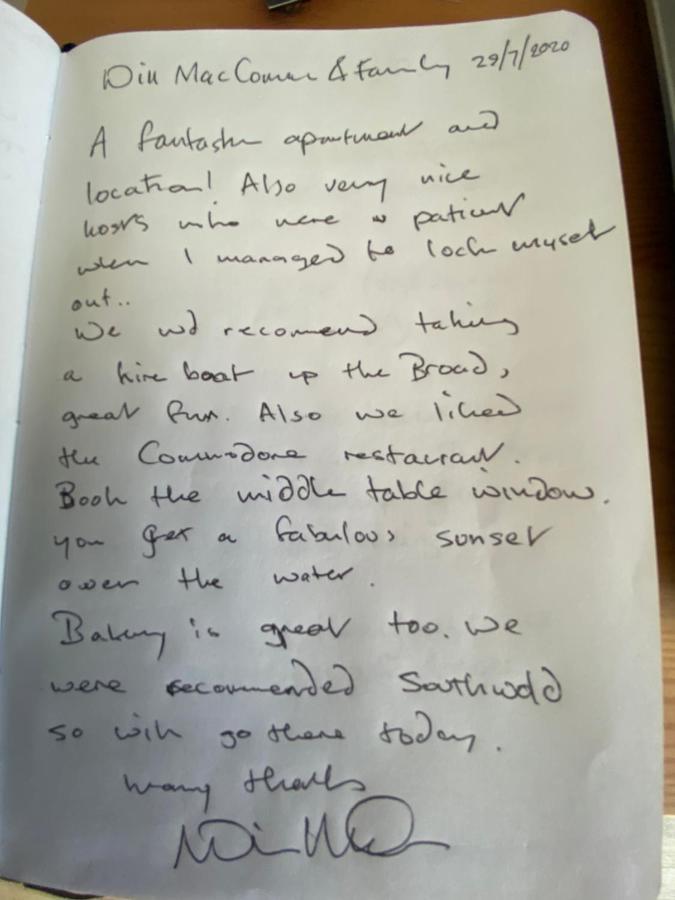 & Family 29/7/2020
A fantastic apartment and
location! Also very nice
hosts who were so patient
when I managed to lock myself
out..
We wd recomend taking
a hire boat up the Broad,
great fun. Also we liked
the Commodore restaurant.
Book the middle table window.
you get a fabulous sunset
over the water.
Bakery is great too. We
were recommended Southwold
so will go there today.
Many thanks